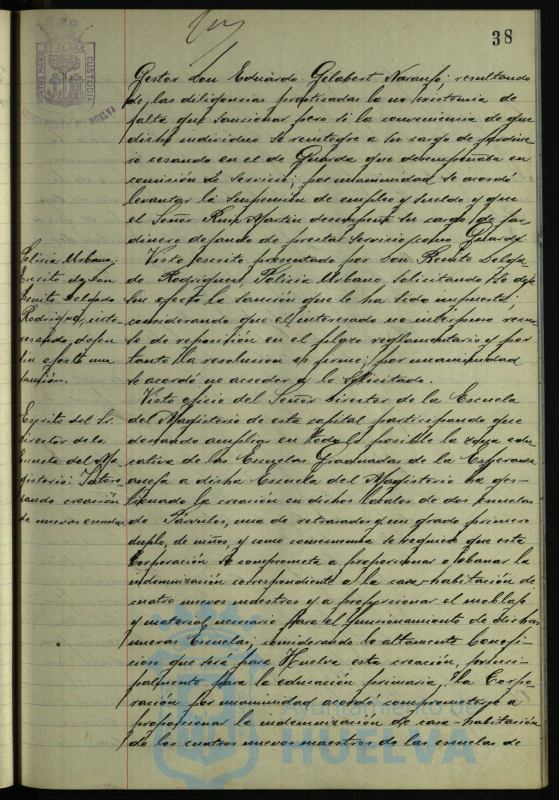 38
PORTUS MARIS ET TERRAE CUSTODIA
HUELVA
Gestor don Eduardo Gelabert Naranjo; resultando
de las diligencias practicadas la no existencia de
falta que sancionar pero si la conveniencia de que
dicho individuo se reintegre a su cargo de jardine-
ro cesando en el de Guarda que desempeñaba en
comisión de servicio; por unanimidad se acordó
levantar la suspensión de empleo y sueldo y que
el Señor Ruiz Martin desempeñe su cargo de jar-
dinero dejando de prestar servicio como Guarda.
Policia Urbano:
Escrito de Don
Benito Delgado
Rodriguez, inte-
resando, dejen
sin efecto una
sanción.
Visto escrito presentado por Don Benito Delga-
do Rodriguez, Policia Urbano, solicitando se deje
sin efecto la sanción que le ha sido impuesta;
considerando que el interesado no interpuso recur-
so de reposición en el plazo reglamentario y por
tanto la resolucion es firme; por unanimidad
se acordó no acceder a lo solicitado.
Escrito del Sr.
Director de la
Escuela del Ma-
gisterio: Intere-
sando creación
de nuevas escuelas.
Visto oficio del Señor Director de la Escuela
del Magisterio de esta capital participando que
deseando ampliar en todo lo posible la obra edu-
cativa de las Escuelas Graduadas de la Esperanza
aneja a dicha Escuela del Magisterio ha ges-
tionado la creación en dichos locales de dos escuelas
de Párvulos, una de retrasados y un grado primero
duplo, de niños, y como consecuencia se requiere que esta
Corporación se comprometa a proporcionar o abonar la
indemnización correspondiente a la casa-habitación de
cuatro nuevos maestros y a proporcionar el moblaje
y material necesario para el funcionamiento de dichas
nuevas Escuelas; considerando lo altamente benefi-
cioso que será para Huelva esta creación, princi-
palmente para la educación primaria, la Corpo-
ración por unanimidad acordó comprometerse a
proporcionar la indemnización de casa-habitación
de los cuatros nuevos maestros de las escuelas de
Ayuntamiento de
HUELVA